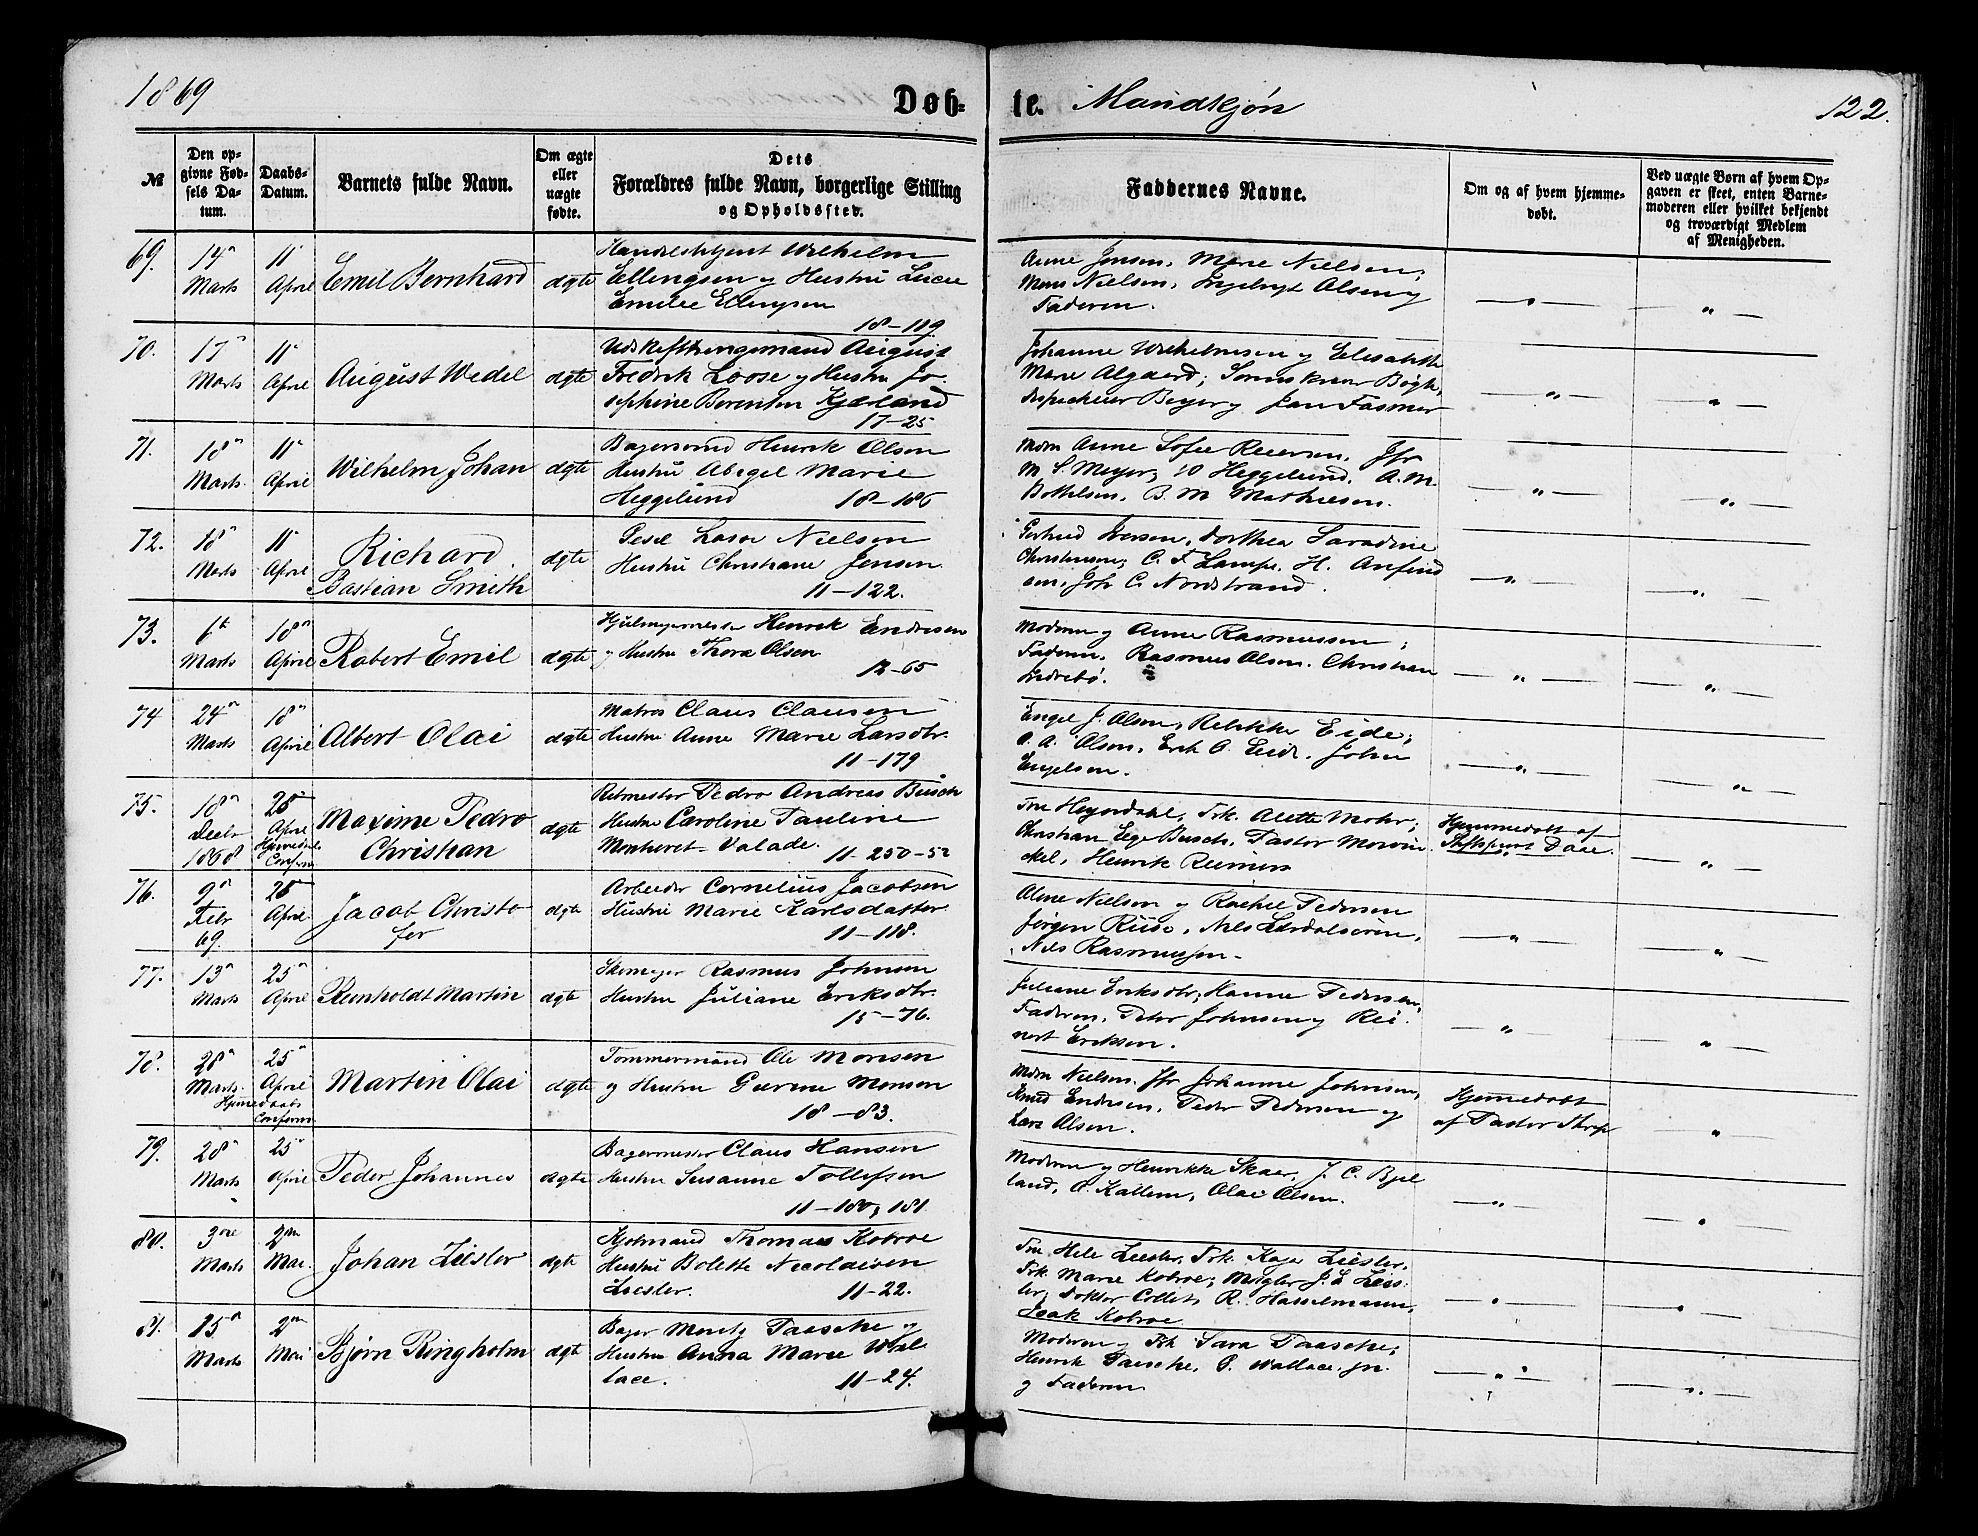 1869
Døb-
te. Mandkjøn
122.
№
Den op-
givne Fød-
sels Da-
tum.
Daabs-
Datum.
Barnets fulde Navn.
Om ægte
eller
uægte
fødte.
Dets
Forældres fulde Navn, borgerlige Stilling
og Opholdssted.
Faddernes Navne.
Om og af hvem hjemme-
døbt.
Ved uægte Børn af hvem Op-
gaven er skeet, enten Barne-
moderen eller hvilket bekjendt
og troværdigt Medlem
af Menigheden.
69.
14
Marts
11
April
Emil Bernhard
ægte
Wilhelm
Ellingsen og Hustru Lucie
Emilie Ellingsen
18-189
Anne Jensen, Marie Nielsen;
Nielsen, Olsen og
Faderen.
70.
17
Marts
11
April
August Wedel
ægte
August
Fredrik Loose og Hustru Jo-
sephine Berenton Kjærland
17-25
Johanne Wilhelmsen og Elisabeth
Marie Algaard;
Beyer og Jan Fasmer
71.
18
Marts
11
April
Wilhelm Johan
ægte
Bagersvend Henrik Olsen
Hustru Abigel Marie
Heggelund
18-186
Anne Sofie Reiersen, Jfr
M. S. Meyer; Heggelund, A. M.
B. M. Mathiesen.
72.
18
Marts
11
April
Richard
Bastian Smith
ægte
Lasse Nielsen
Hustru Christiane Jensen
11-122.
Gertrud Iversen, Dorthea Saradine
Christensen; C. F. Lampe, H. Anfind
sen, Joh C. Nordstrand.
73.
6te
Marts
18
April
Robert Emil
ægte
Henrik Endresen
og Hustru Thora Olsen
12-65
Moderen og Anne Rasmussen;
Faderen, Rasmus Olsen, Christian
74
24
Marts
18
April
Albert Olai
ægte
Matros Claus Clausen
Hustru Anne Marie Larsdtr.
11-179
Engel J. Olsen, Rebekka Eide;
O. A. Olsen, Erik A. Eide, John
Engelsen.
75.
18
Decbr
1868
25
April
Maxime Pedro
Christian
ægte
Ritmester Pedro Andreas Büsch
Hustru Caroline Pauline
Valade.
11-250-52
Fru Heyerdahl, Frk. Alette Mohr;
Christian Ege Busch, Pastor Morvin
ckel, Henrik Reimers
Hjemmedøbt af
Stiftsprost Daae.
76.
9
Febr
69.
25
April
Jacob Christo
fer
ægte
Arbeider Cornelius Jacobsen
Hustru Marie Karlsdatter
11-118.
Nielsen og Rachel Pedersen
Jørgen Riise, Nils
Nils Rasmussen
77.
13
Marts
25
April
Reinholdt Martin
ægte
Skomager Rasmus Johnsen
Hustru Juliane Eriksdtr.
15-76.
Juliane Eriksdtr, Hanne Pedersen,
Faderen, Peter Johnsen og Rei-
nert Eriksen.
78.
28
Marts
25
April
Hjemmedaabs
Conferm
Martin Olai
ægte
Tømmermand Ole Monsen
og Hustru Gurine Monsen
18-83.
Mdm Nielsen, Jfr Johanne Johnsen,
Knud Endresen, Peder Pedersen og
Lars Olsen.
Hjemmedøbt
af Pastor
79.
28
Marts
25
April
Peder Johannes
ægte
Bagermester Claus Hansen
Hustru Susanne Tollefsen
11-180, 181
Moderen og Henrikke Skaar, J. C. Bjel
land, O. Kallem, Olai Olsen.
80.
3
Marts
2
Mai.
Johan Ziesler
ægte
Kjøbmand Thomas Kobroe
Hustru Bolette Nicolaisen
Ziesler.
11-22.
Fru Ziesler, Frk. Kaja Ziesler,
Frk. Marie Kobroe; Mægler J. L. Zies-
ler, Doktor Collett, R. Hasselmann,
Isak Kobroe
81.
15
Marts
2
Mai
Bjørn Ringholm
ægte
Bager Moritz Paasche og
Hustru Anna Marie Wal
lace.
11-24.
Moderen og Frk Sara Paasche;
Henrik Paasche, P. Wallace, jn.
og Faderen